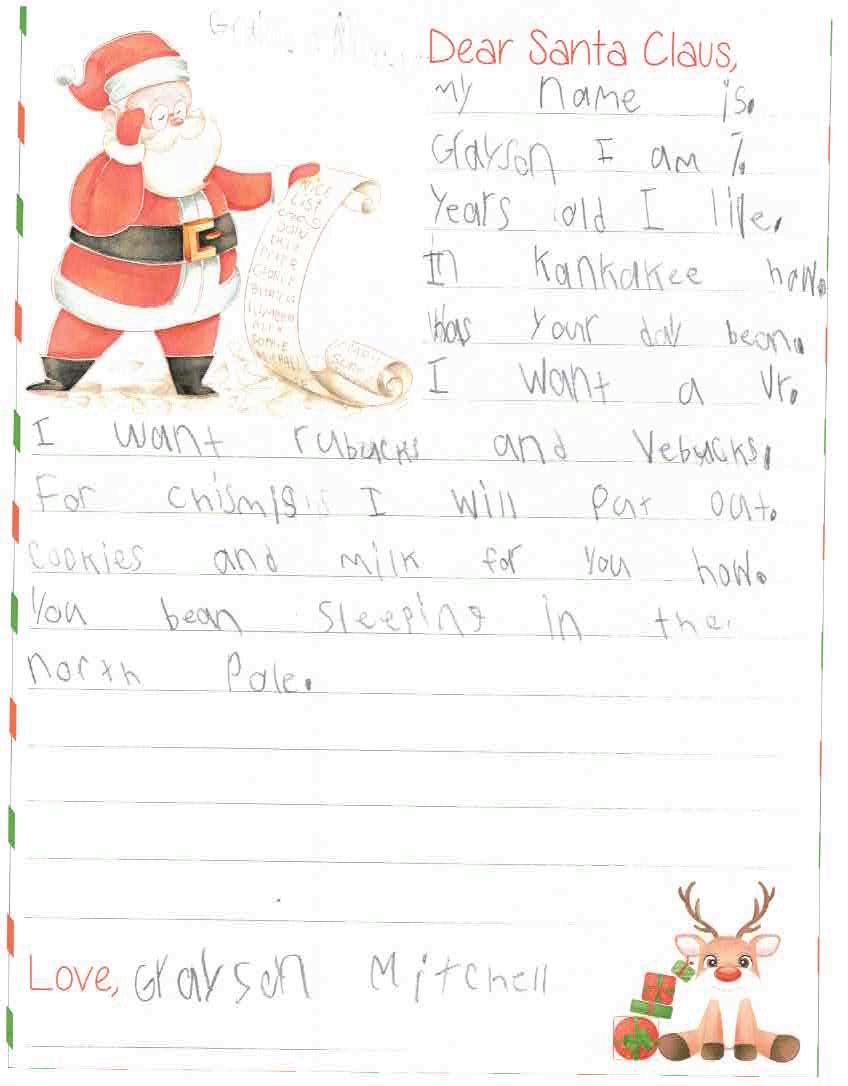 Dear Santa Claus,
my name is.
Grayson I am 7.
Years old I live.
In Kankakee how.
Was your day bean.
I want a Vr.
I want rubucks and Vebucks.
For chismis I will put out.
cookies and milk for you how.
You bean sleeping in the
north Pole.
NICE
LIST
Love, Grayson Mitchell